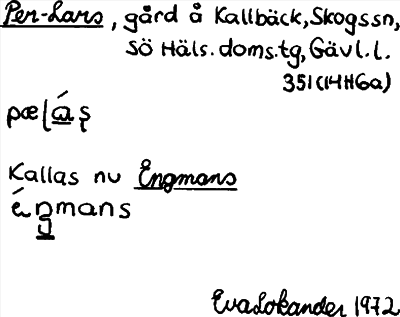 Per-Lars, gård å Kallbäck, Skogs sn,
Sö Häls. doms. tg, Gävl. l.
351 (14H6a)
pæɭás̩
Kallas nu Ängmans
éŋmans
Eva Lokander 1972